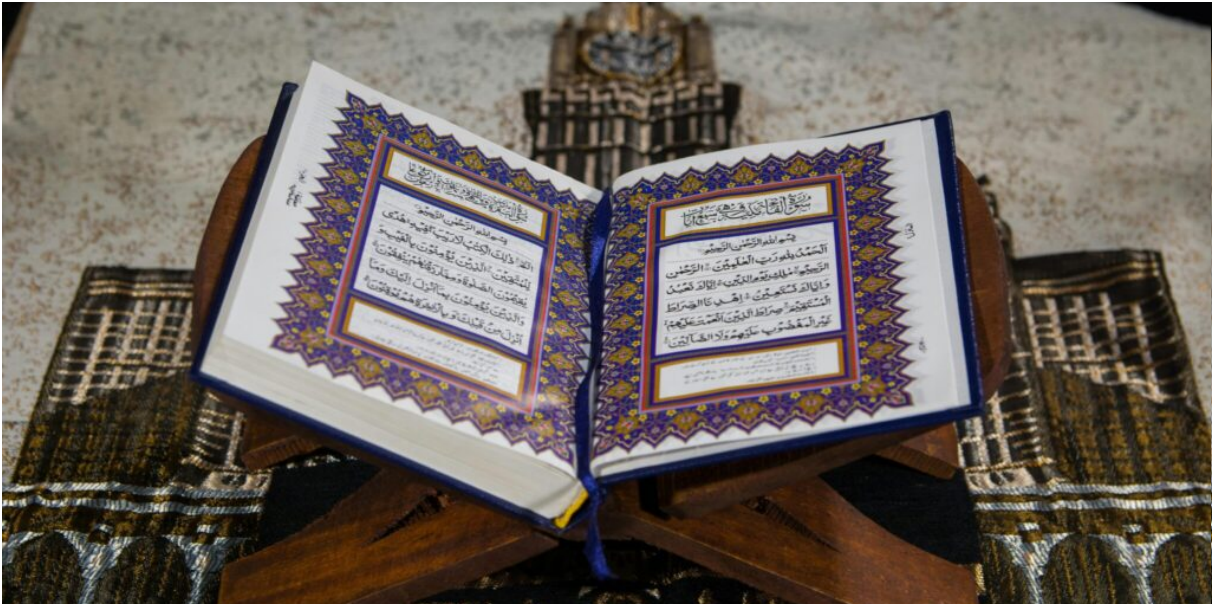 سُوْرَةُ الْفَاتِحَةِ مَكِّيَّةٌ وَهِيَ سَبْعُ اٰيَاتٍ
بِسْمِ اللهِ الرَّحْمٰنِ الرَّحِيْمِ
اَلْحَمْدُ لِلّٰهِ رَبِّ الْعٰلَمِيْنَ ۙ الرَّحْمٰنِ
الرَّحِيْمِ ۙ مٰلِكِ يَوْمِ الدِّيْنِ ۗ اِيَّاكَ نَعْبُدُ
وَاِيَّاكَ نَسْتَعِيْنُ ۗ اِهْدِنَا الصِّرَاطَ
الْمُسْتَقِيْمَ ۙ صِرَاطَ الَّذِيْنَ اَنْعَمْتَ عَلَيْهِمْ
غَيْرِ الْمَغْضُوْبِ عَلَيْهِمْ وَلَا الضَّآلِّيْنَ
سُوْرَةُ الْبَقَرَةِ
بِسْمِ اللهِ الرَّحْمٰنِ الرَّحِيْمِ
الٓمّٓ ۚ ذٰلِكَ الْكِتٰبُ لَا رَيْبَ ۛ فِيْهِ ۛ هُدًى
لِّلْمُتَّقِيْنَ ۙ الَّذِيْنَ يُؤْمِنُوْنَ بِالْغَيْبِ وَ
يُقِيْمُوْنَ الصَّلٰوةَ وَمِمَّا رَزَقْنٰهُمْ يُنْفِقُوْنَ ۙ
وَالَّذِيْنَ يُؤْمِنُوْنَ بِمَآ اُنْزِلَ اِلَيْكَ وَمَآ
اُنْزِلَ مِنْ قَبْلِكَ ۚ وَبِالْاٰخِرَةِ هُمْ يُوْقِنُوْنَ